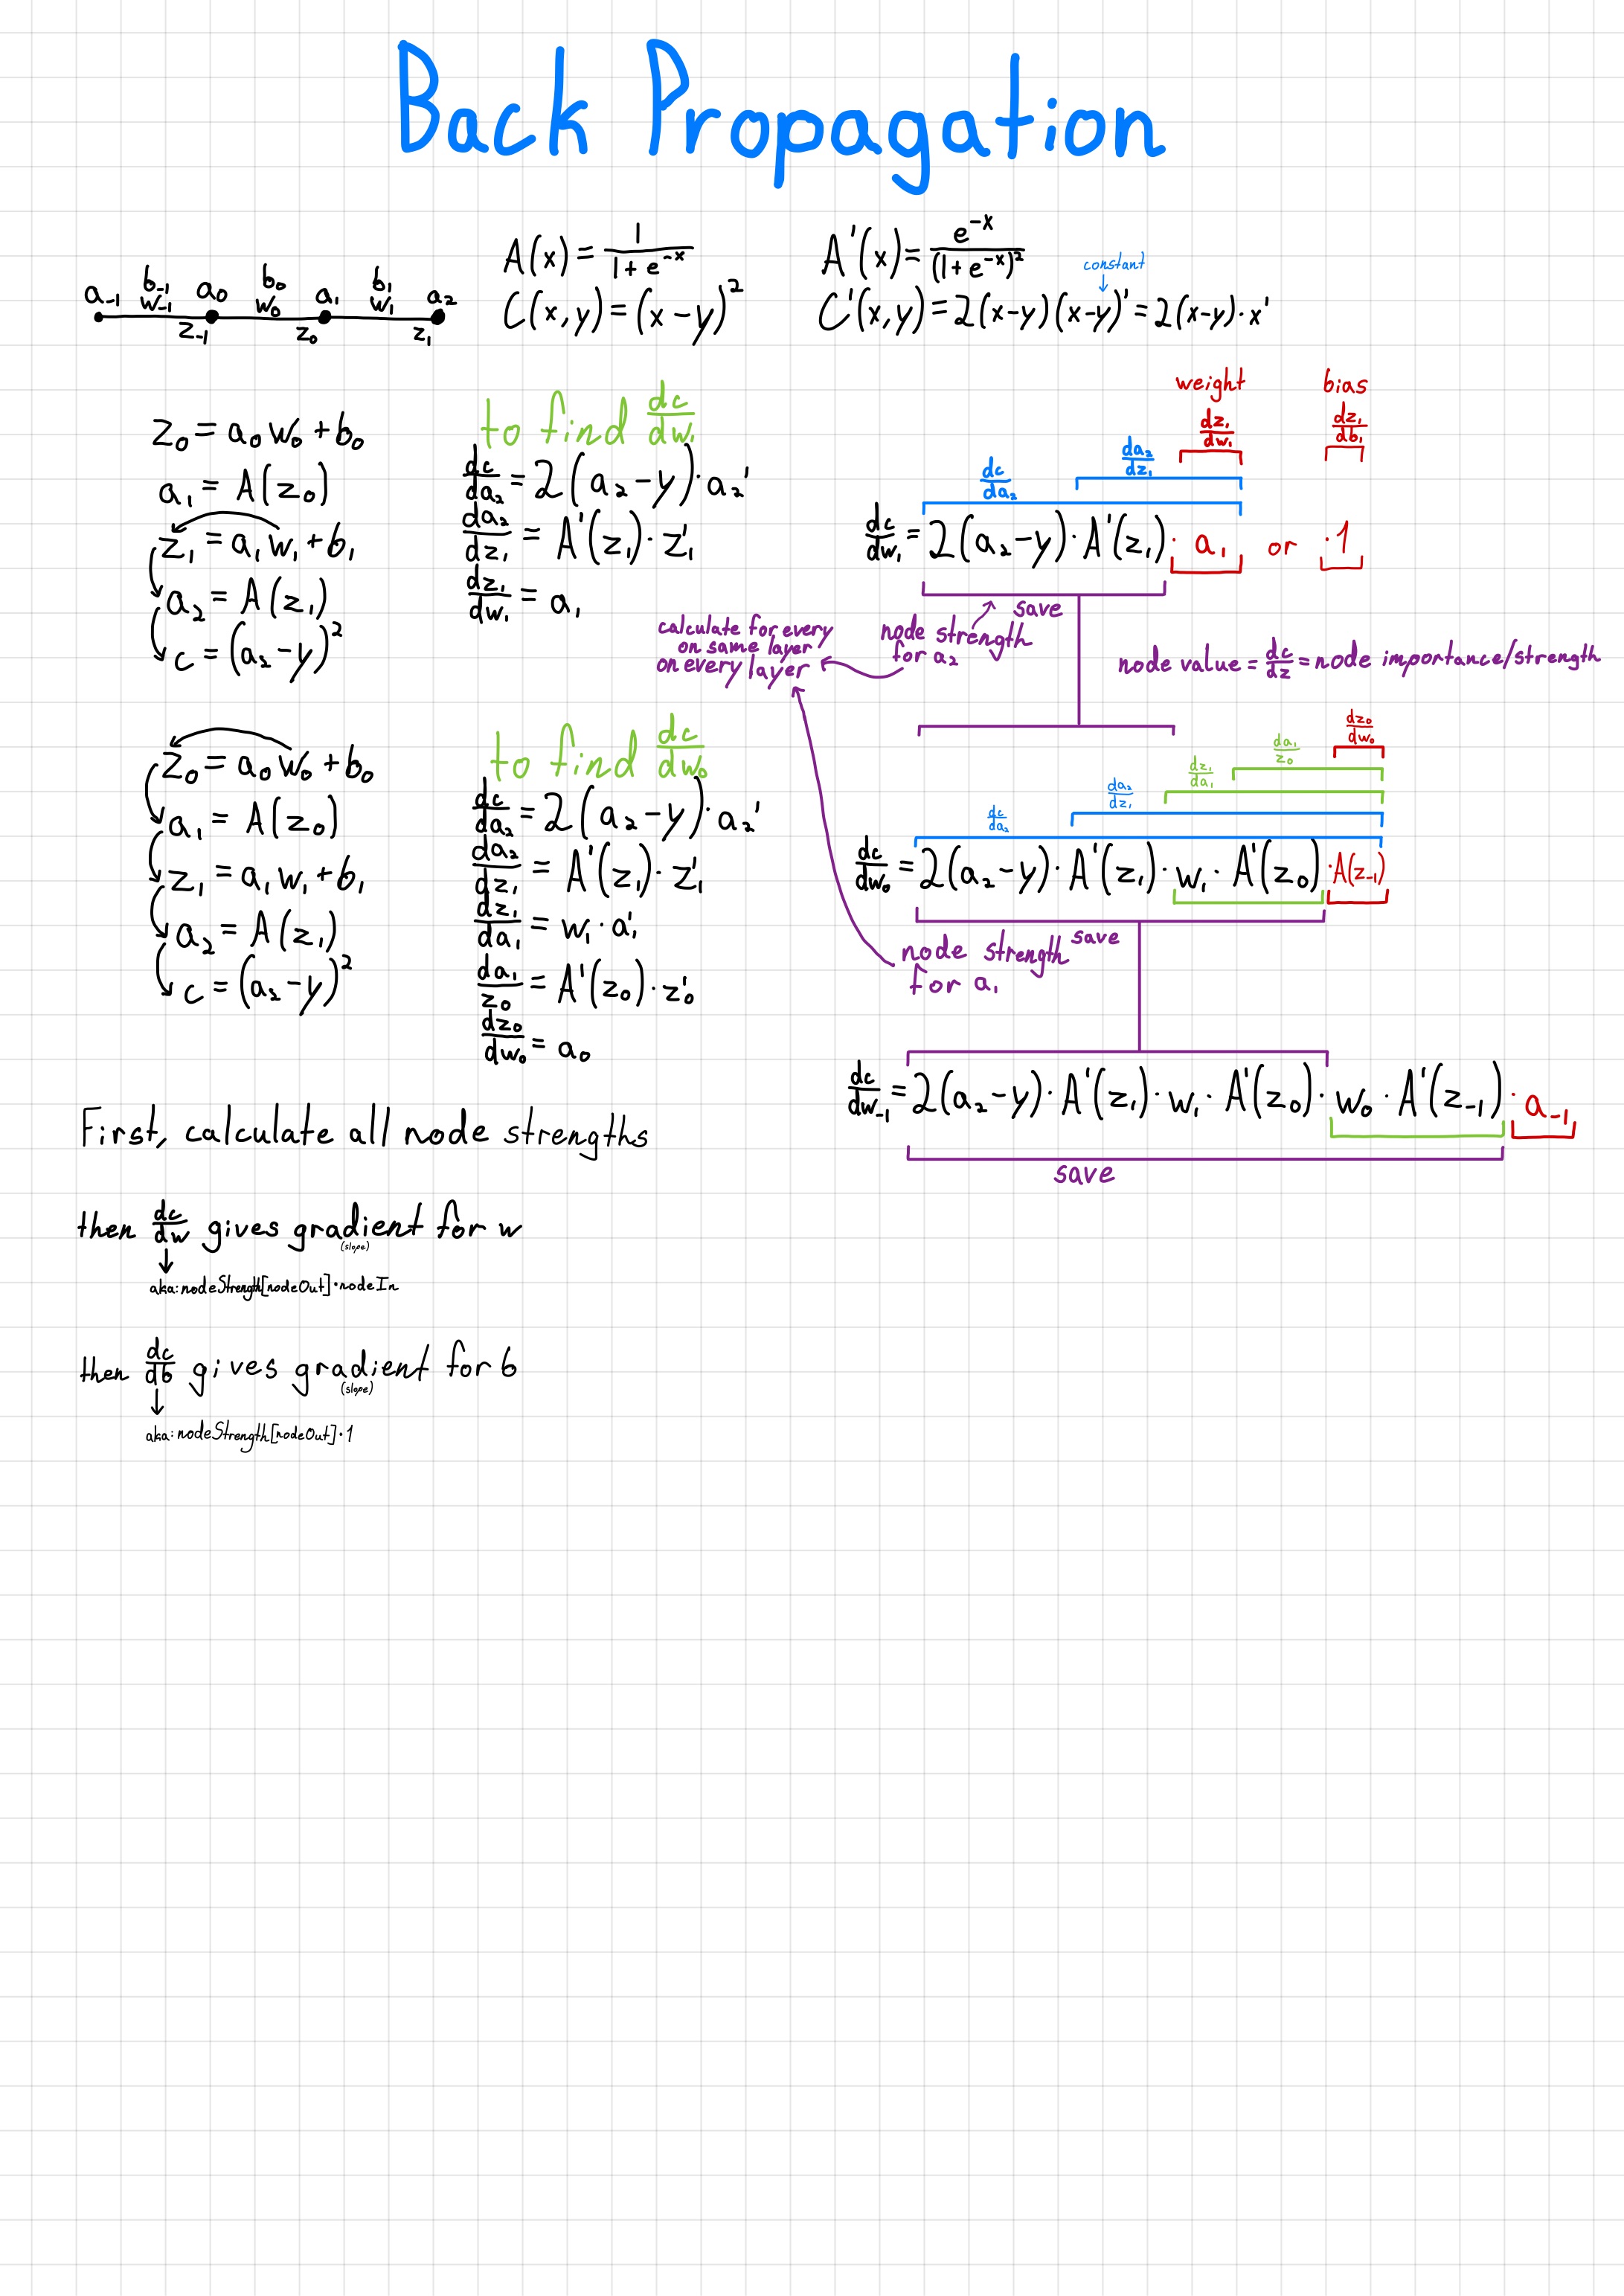 Back Propagation
a₋₁ b₋₁ w₋₁ a₀ b₀ w₀ a₁ b₁ w₁ a₂
z₋₁ z₀ z₁
A(x) = 1/(1 + e^-x)
C(x,y) = (x-y)²
A'(x) = e^-x/(1+e^-x)²
constant
C'(x,y) = 2(x-y)(x-y)' = 2(x-y)·x'
z₀ = a₀w₀ + b₀
a₁ = A(z₀)
z₁ = a₁w₁ + b₁
a₂ = A(z₁)
c = (a₂-y)²
to find dc/dw₁
dc/da₂ = 2(a₂-y)·a₂'
da₂/dz₁ = A'(z₁)·z₁'
dz₁/dw₁ = a₁
weight bias
dz₁/dw₁ dz₁/db₁
da₂/dz₁
dc/da₂
dc/dw₁ = 2(a₂-y)·A'(z₁)·a₁ or ·1
save
node strength
for a₂
calculate for every
on same layer
on every layer
node value = dc/dz = node importance/strength
z₀ = a₀w₀ + b₀
a₁ = A(z₀)
z₁ = a₁w₁ + b₁
a₂ = A(z₁)
c = (a₂-y)²
to find dc/dw₀
dc/da₂ = 2(a₂-y)·a₂'
da₂/dz₁ = A'(z₁)·z₁'
dz₁/da₁ = w₁·a₁'
da₁/z₀ = A'(z₀)·z₀'
dz₀/dw₀ = a₀
dz₀/dw₀
da₁/z₀
dz₁/da₁
da₂/dz₁
dc/da₂
dc/dw₀ = 2(a₂-y)·A'(z₁)·w₁·A'(z₀)·A(z₋₁)
save
node strength
for a₁
dc/dw₋₁ = 2(a₂-y)·A'(z₁)·w₁·A'(z₀)·w₀·A'(z₋₁)·a₋₁
save
First, calculate all node strengths
then dc/dw gives gradient for w
(slope)
aka: nodeStrength[nodeOut]·nodeIn
then dc/db gives gradient for b
(slope)
aka: nodeStrength[nodeOut]·1